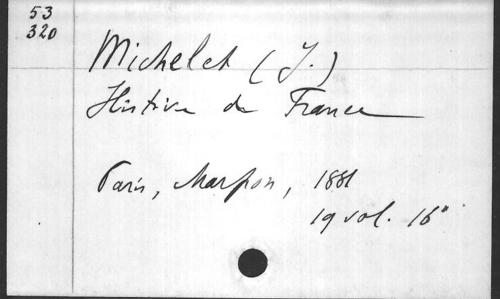 53
320
Michelet (J.)
Histoire de France
Paris, Marpon, 1881
19 vol. 16°